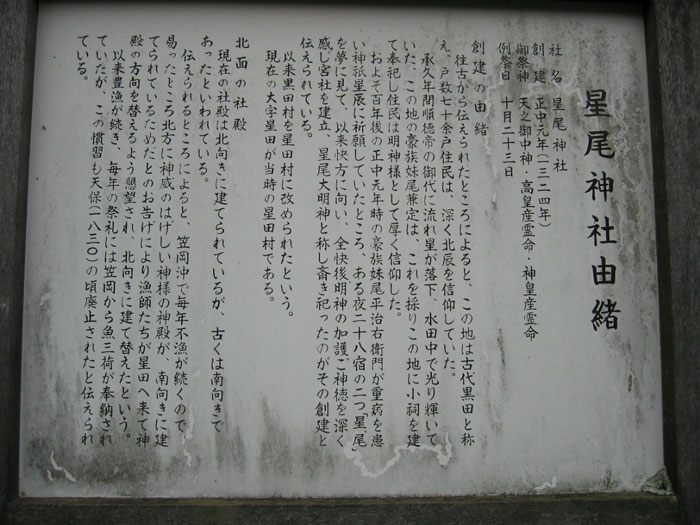 星尾神社由緒
社名 星尾神社
創建 正中元年(一三二四年)
御祭神 天之御中神・高皇産霊命・神皇産霊命
例祭日 十月二十三日
創建の由緒
往古から伝えられたところによると、この地は古代黒田と称
え、戸数七十余戸住民は、深く北辰を信仰していた。
承久年間順徳帝の御代に流れ星が落下、水田中で光り輝いて
いた、この地の豪族妹尾兼定は、これを採りこの地に小祠を建
て奉祀し住民は明神様として厚く信仰した。
およそ百年後の正中元年時の豪族妹尾平治右衛門が重病を患
い神祇星辰に祈願していたところ、ある夜二十八宿の二つ「星、尾」
を夢に見て、以来快方に向い、全快後明神の加護ご神徳を深く
感じ宮社を建立、星尾大明神と称し斎き祀ったのがその創建と
伝えられている。
以来黒田村を星田村に改められたという。
現在の大字星田が当時の星田村である。
北面の社殿
現在の社殿は北向きに建てられているが、古くは南向きで
あったといわれている。
伝えられるところによると、笠岡沖で毎年不漁が続くので
易ったところ北方に神威のはげしい神様の神殿が、南向きに建
てられているためだとのお告げにより漁師たちが星田へ来て神
殿の方向を替えるよう懇望され、北向きに建て替えたという。
以来豊漁が続き、毎年の祭礼には笠岡から魚三荷が奉納され
ていたが、この慣習も天保(一八三〇)の頃廃止されたと伝えられ
ている。